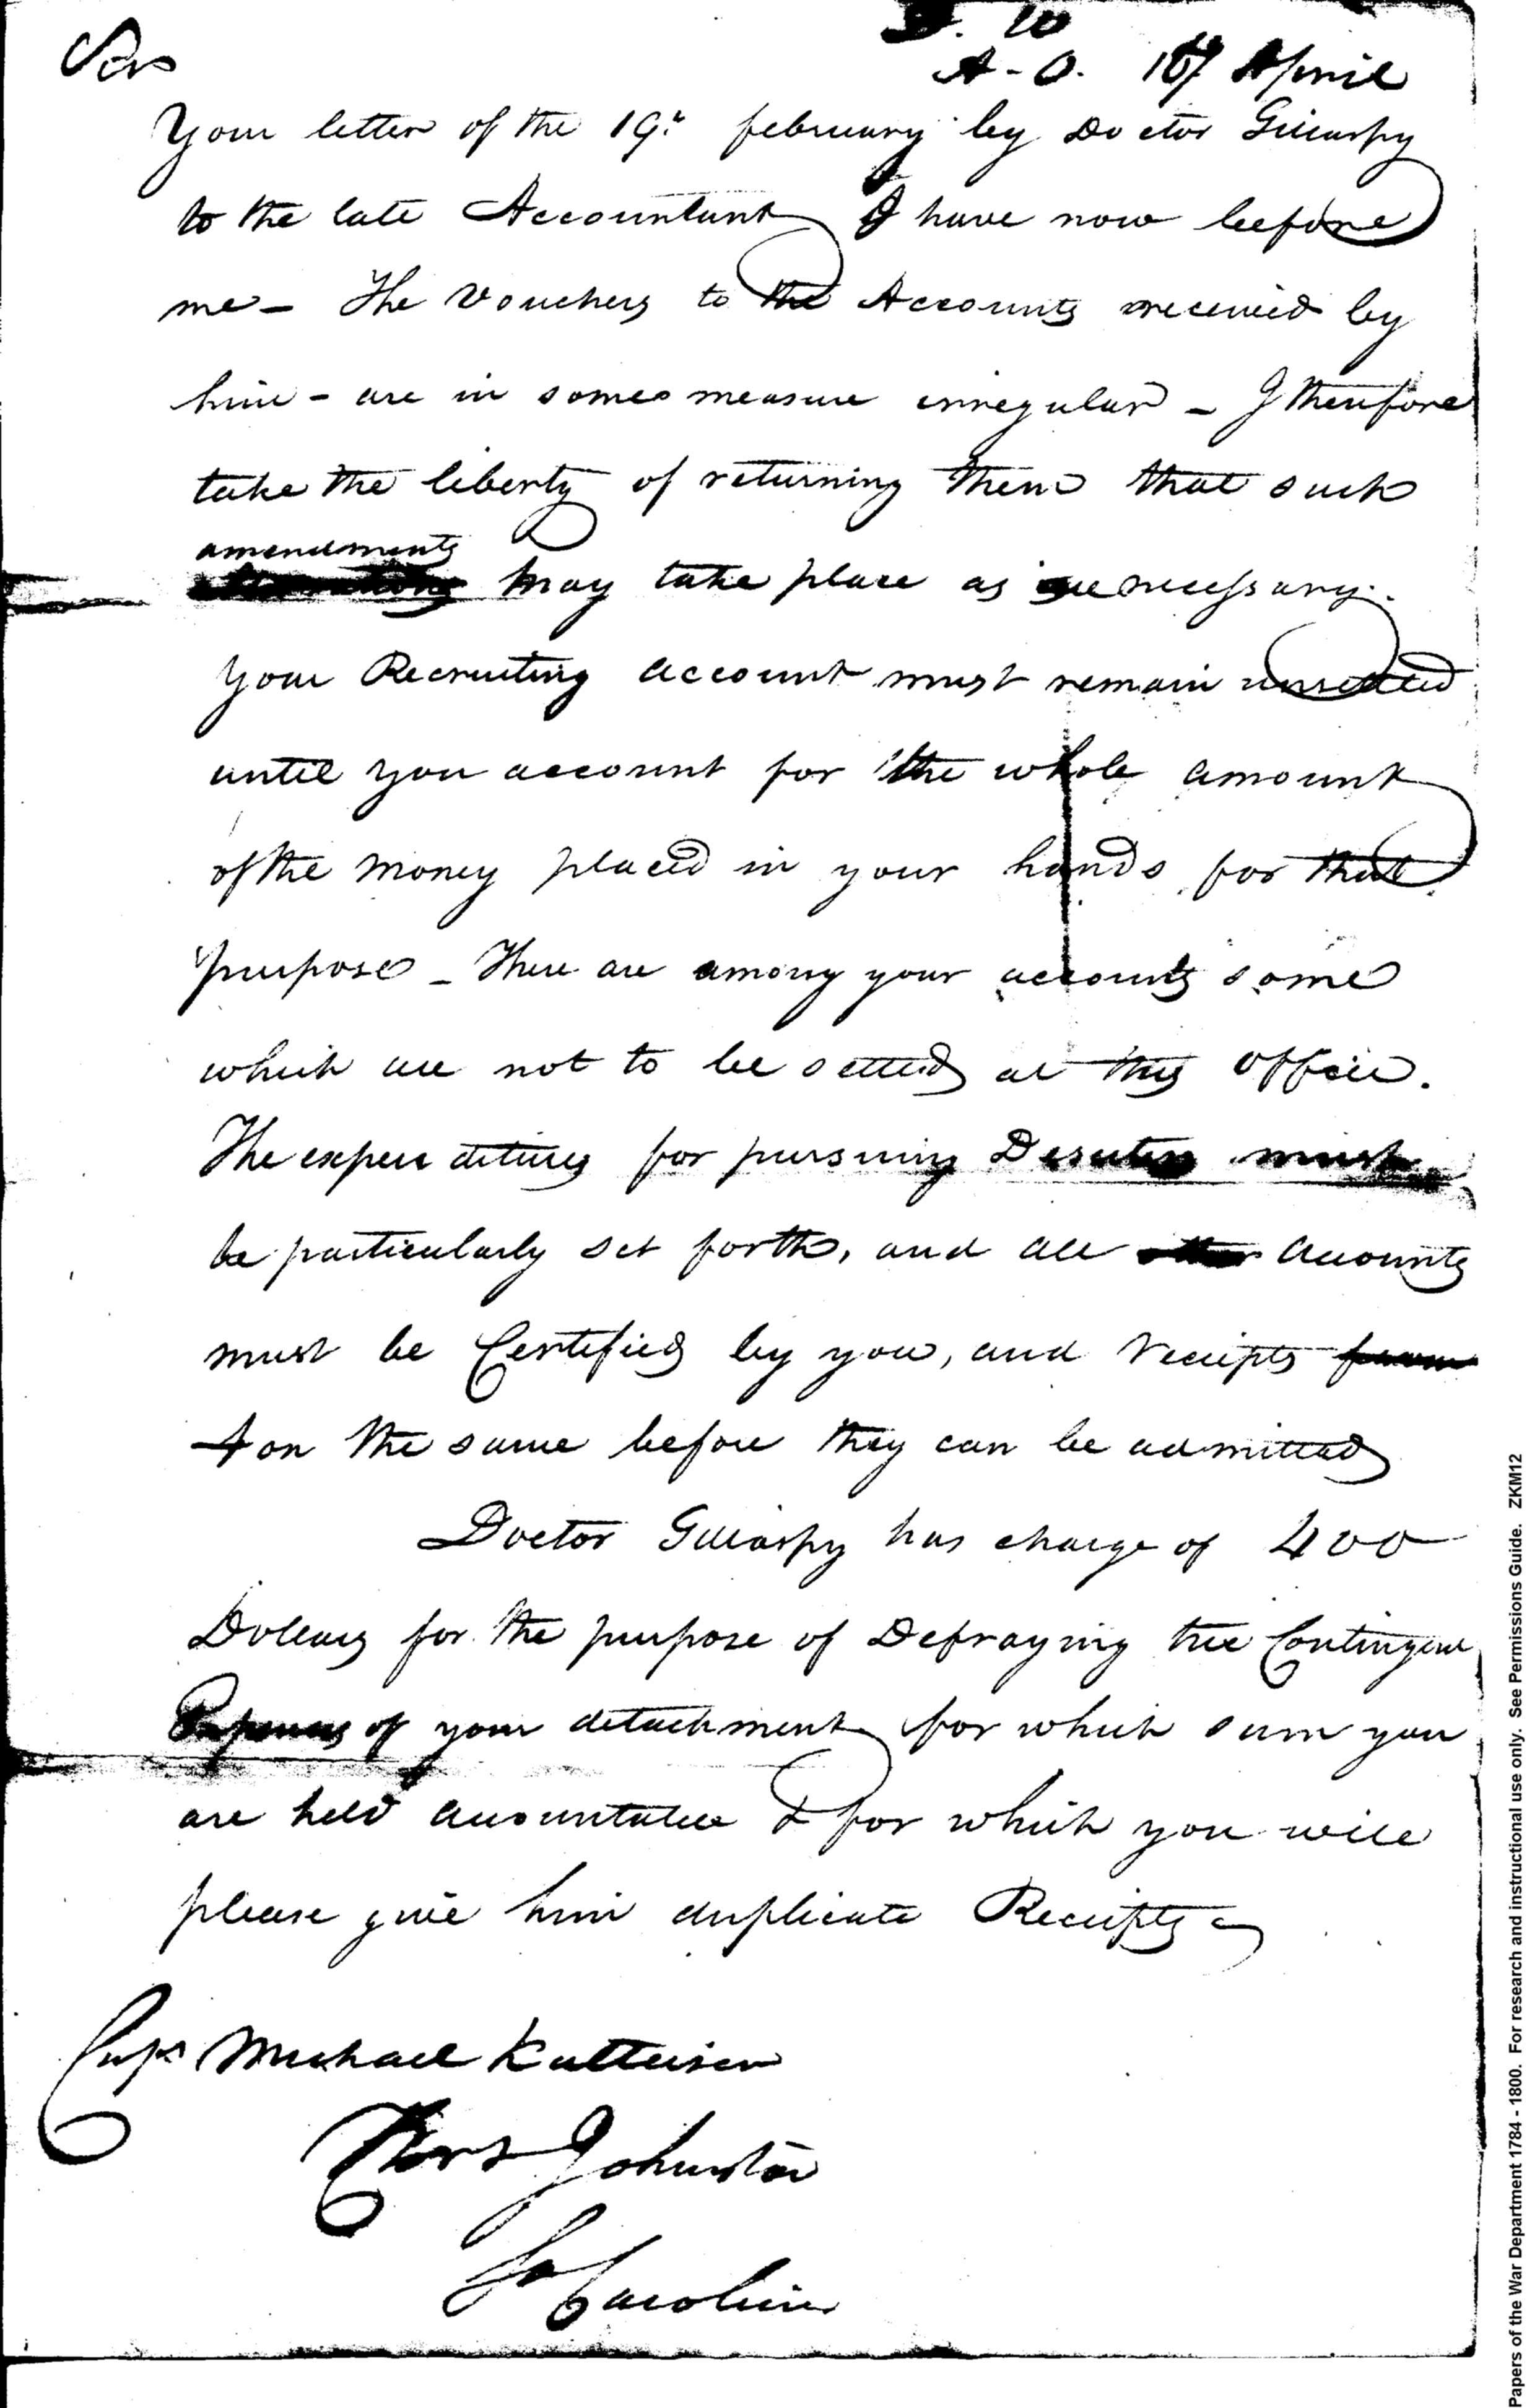 D. W
A - O. 16 April
Sir
Your letter of the 19th february by Doctor Gillaspy
to the late Accountant I have now before
me - The Vouchers to the Accounts received by
him - are in some measure irregular - I therefore
take the liberty of returning them that such
amendments
may take place as are necessary.
Your Recruiting account must remain unsettled
until you account for the whole amount
of the money placed in your hands for that
purpose - There are among your accounts some
which are not to be settled at this office.
The expenditures for pursuing Deserters must
be particularly set forth, and all other Accounts
must be Certified by you, and receipts from
on the same before they can be admitted
Doctor Gillaspy has charge of 400
Dollars for the purpose of Defraying the Contingent
Expences of your detachment for which sum you
are held accountable & for which you will
please give him duplicate Receipts
Capt Michael Kalteisen
Fort Johnston
So Carolina
Papers of the War Department 1784 - 1800. For research and instructional use only. See Permissions Guide. ZKM12